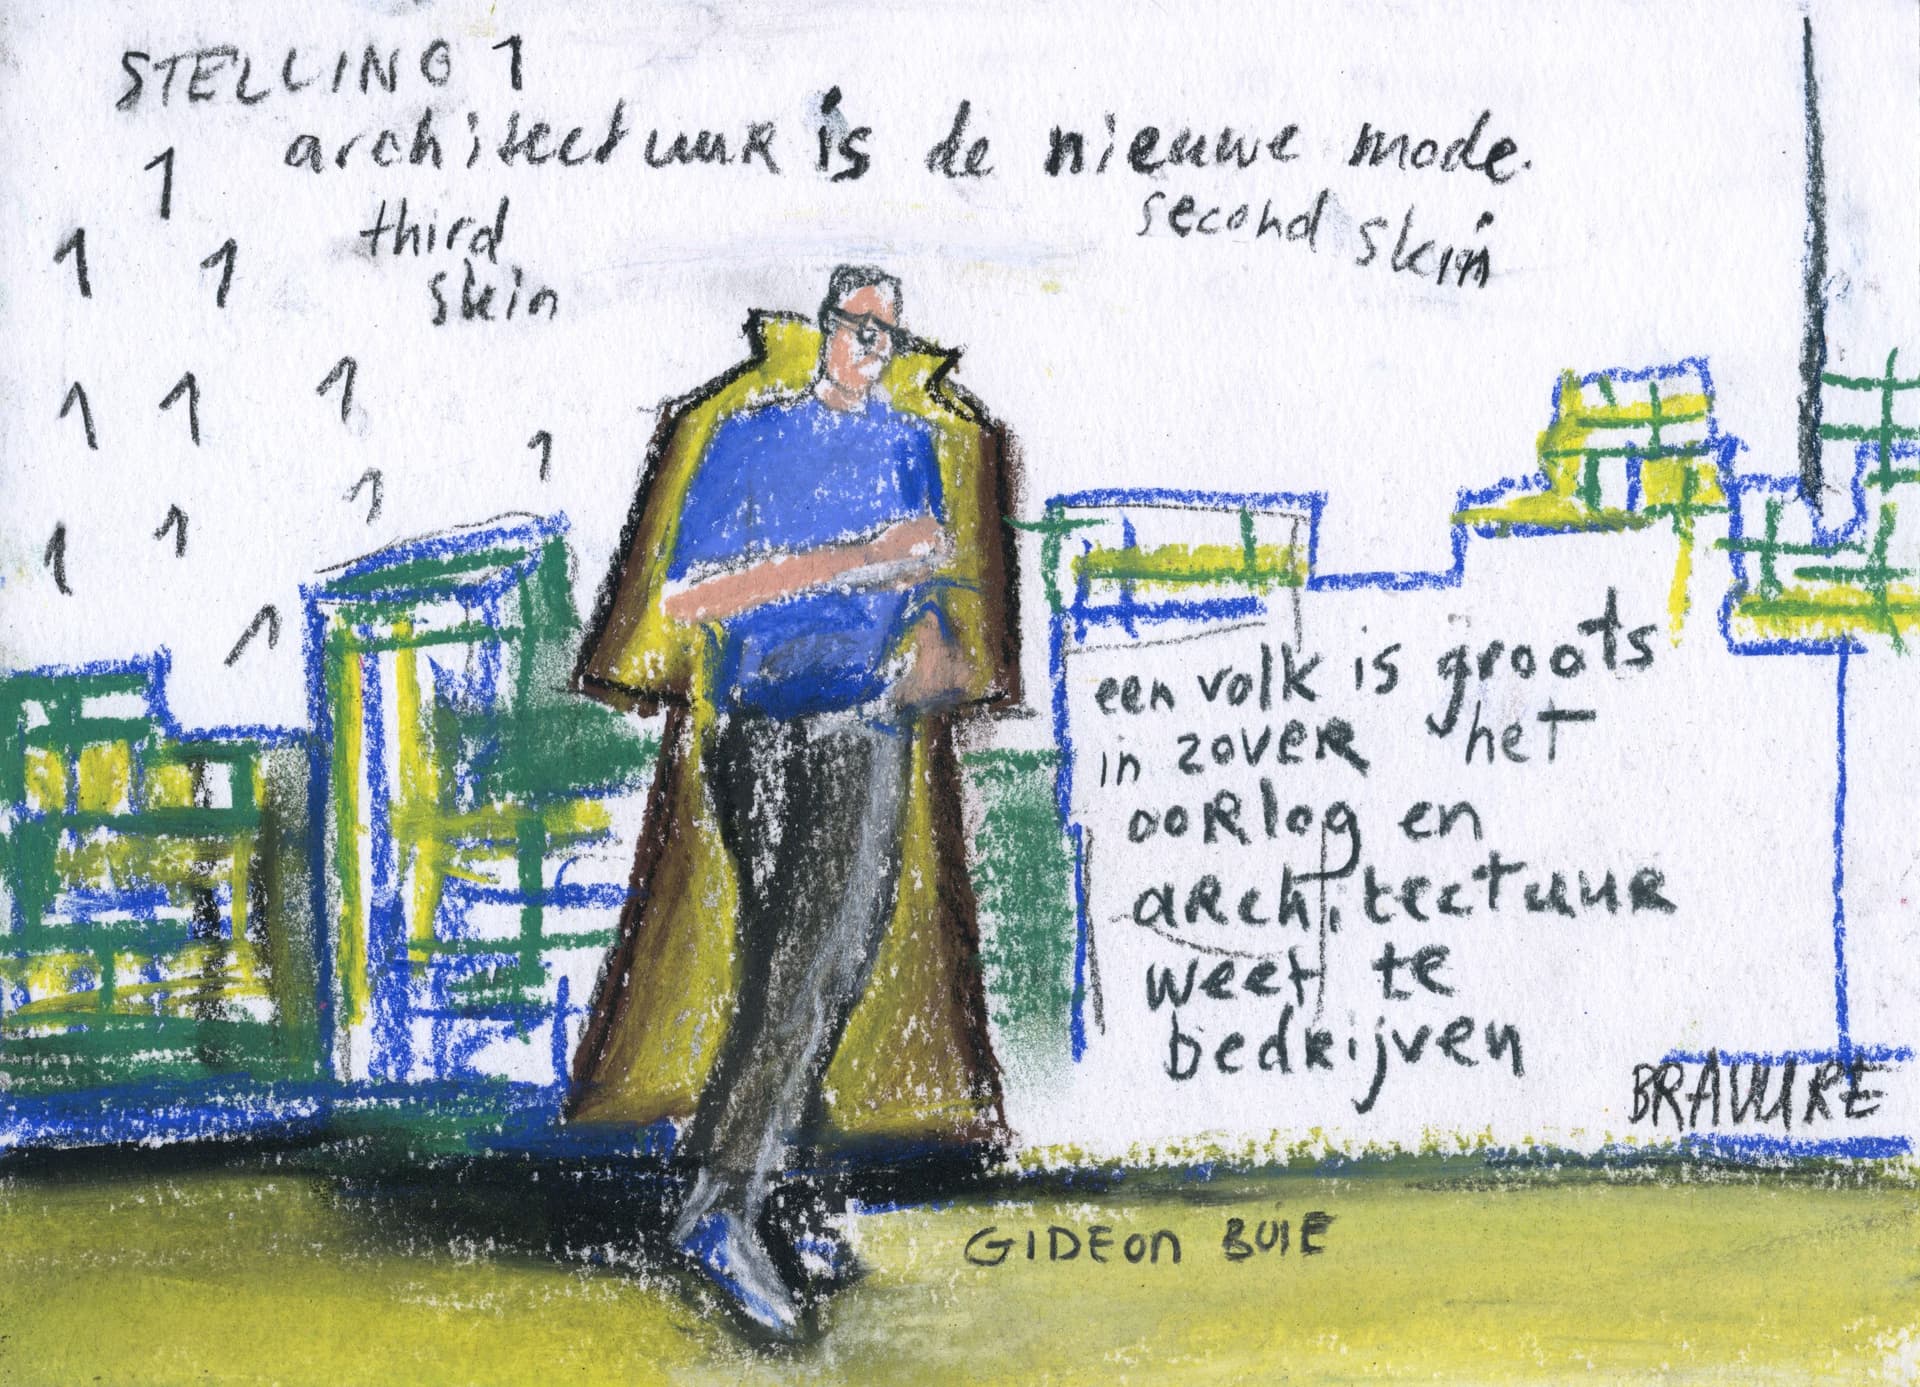 STELLING 1
architectuur is de nieuwe mode.
1
third
skin
second skin
1
1
1
1
1
1
1
1
1
1
een volk is groots
in zover het
oorlog en
architectuur
weet te
bedrijven
BRAVURE
GIDEon BUIE